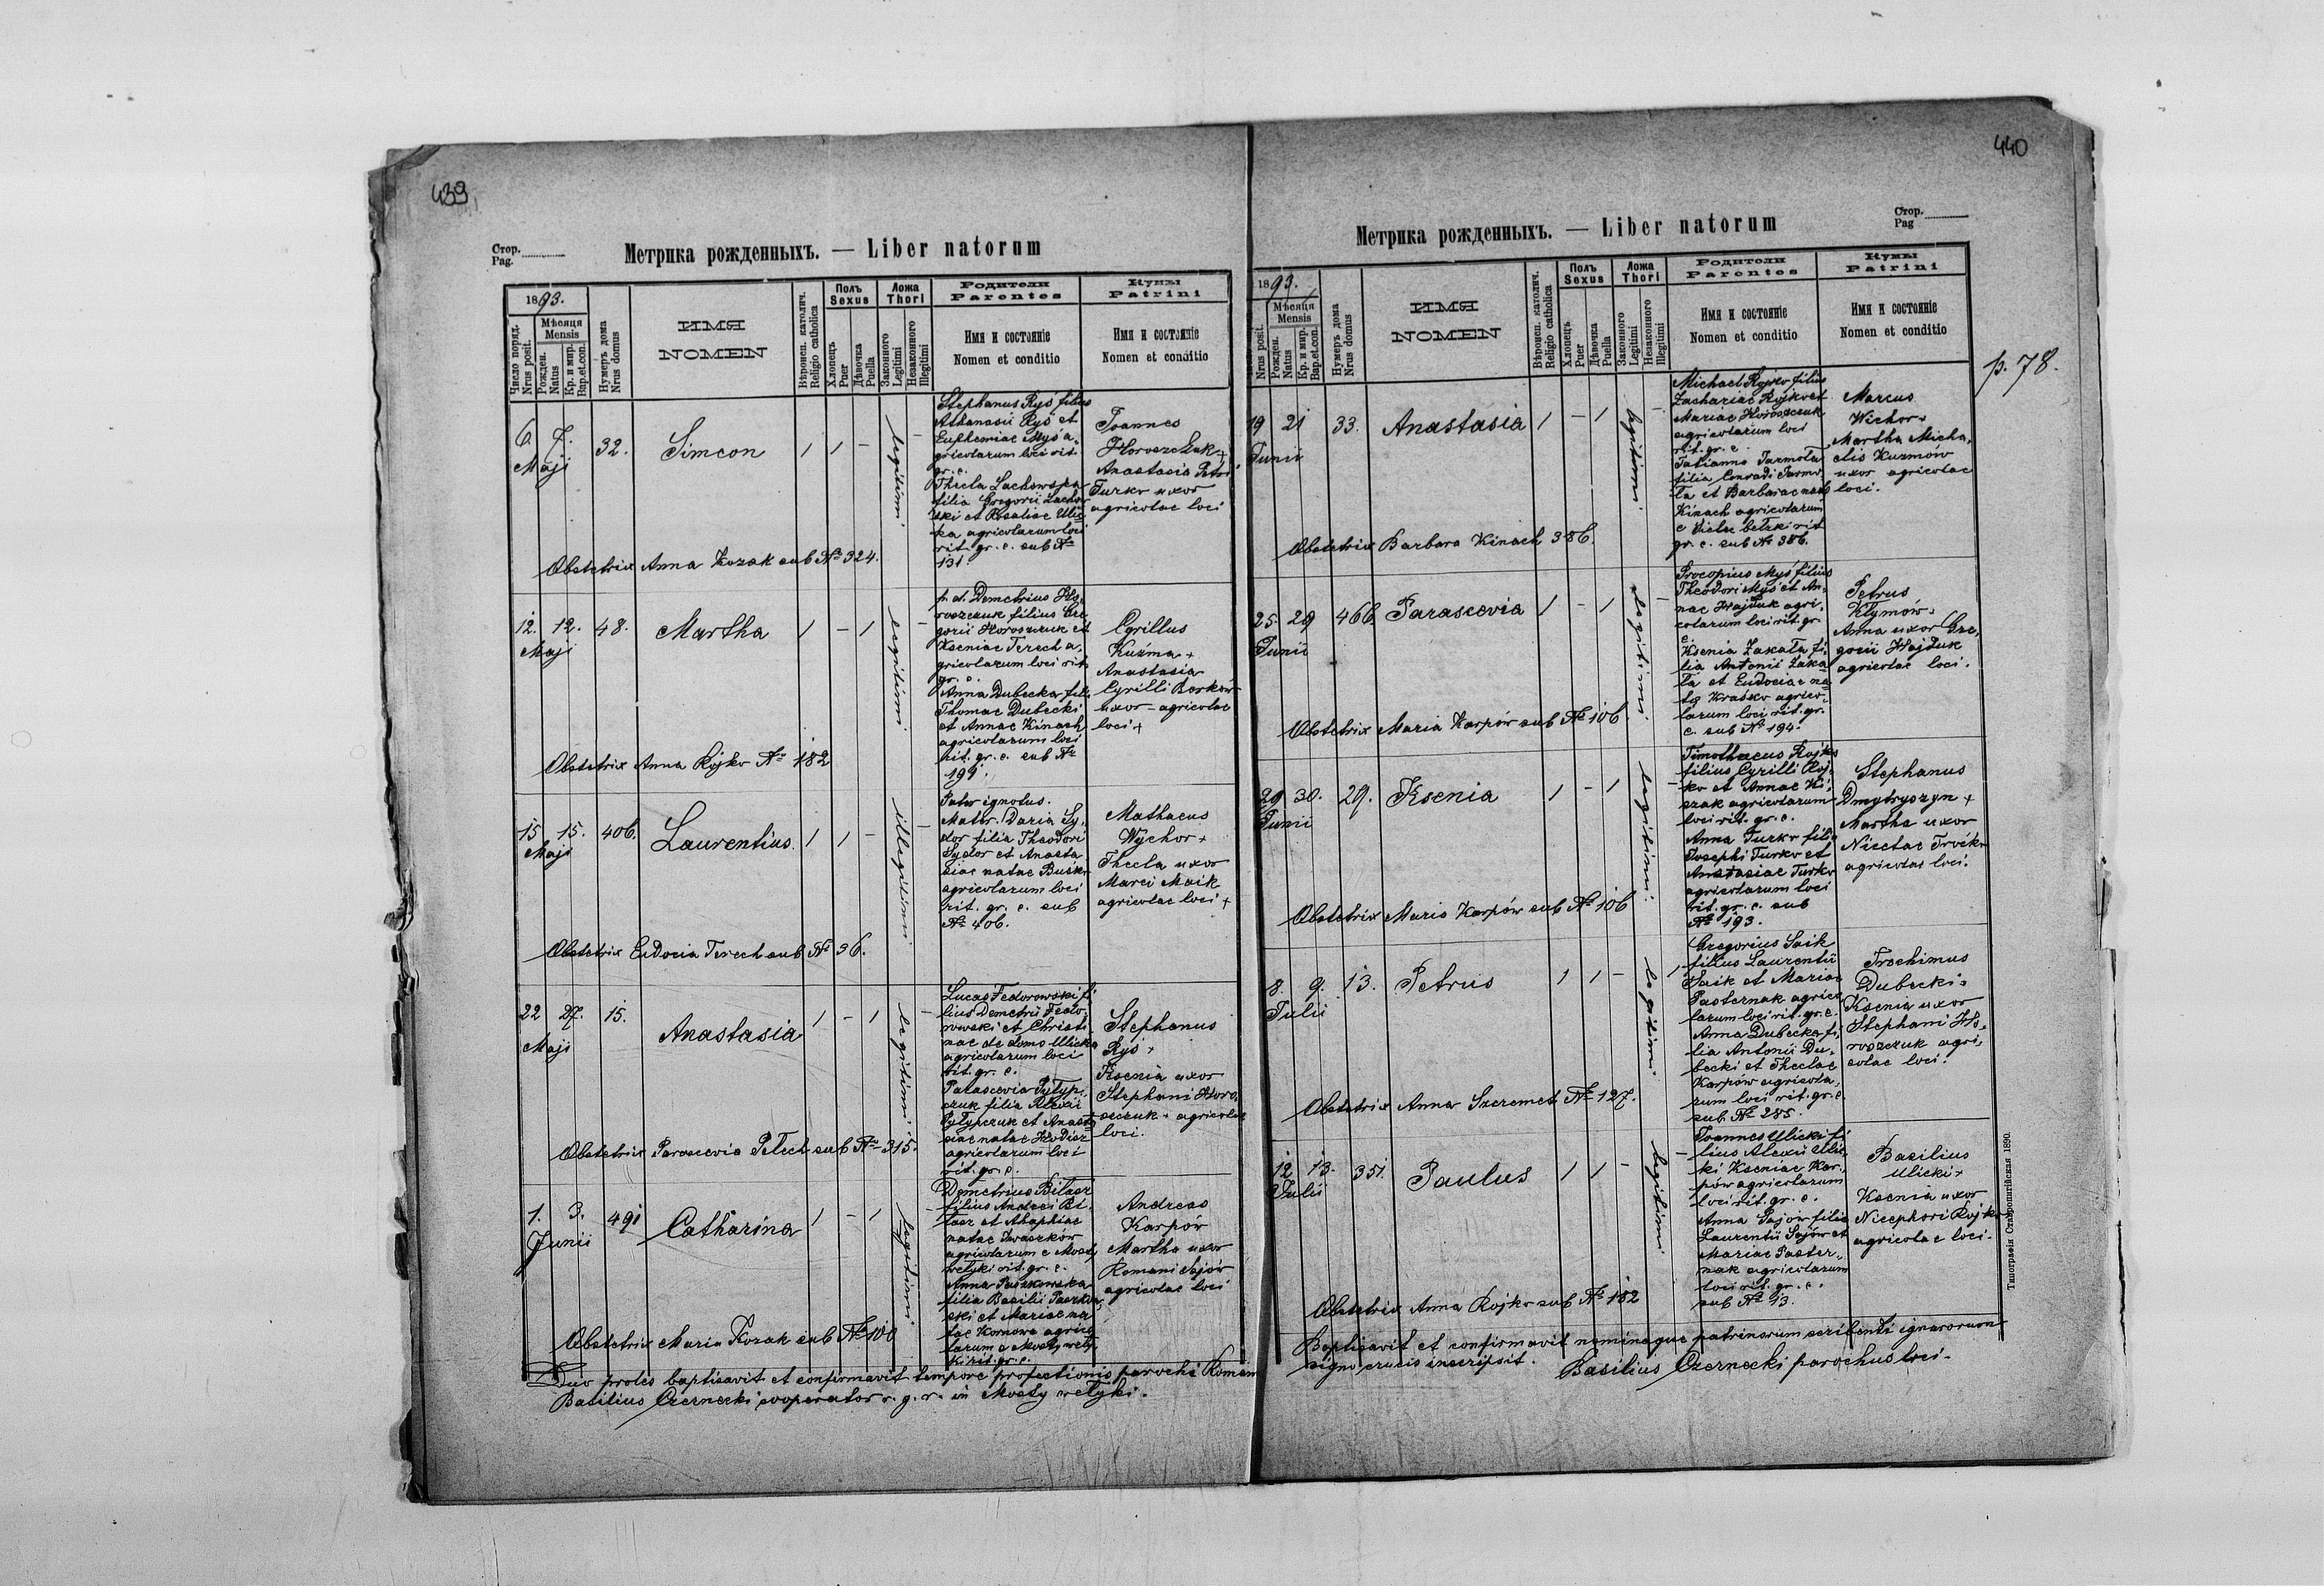 439
Стор.
Pag.
Метрика рожденныхъ. — Liber natorum
1893.
Число поряд.
Nrus posit.
Мѣсяця
Mensis
Рожден.
Natus
Кр. и мир.
Bap.et.con.
Нумеръ дома
Nrus domus
ИМЯ
NOMEN
Вѣроисп. католич.
Religio catholica
Полъ
Sexus
Хлопецъ
Puer
Дѣвочка
Puella
Ложа
Thori
Законного
Legitimi
Незаконного
Illegitimi
Родители
Parentes
Имя и состоянiе
Nomen et conditio
Кумы
Patrini
Имя и состоянiе
Nomen et conditio
6. 7. 32. Simeon 1 1 - legitimi -
Maji
Stephanus Ryś filius
Athanasii Ryś et
Euphemiae Myś a-
gricolarum loci rit.
gr. c.
Thecla Lachowska
filia Gregorii Lachow
ski et Rosaliae Ulic
ka agricolarum loci
rit. gr. c. sub Nº
131.
Joannes
Horoszczuk +
Anastasia Petri
Turko uxor
agricolae loci
Obstetrix Anna Kozak sub Nº 324.
12. 12. 48. Martha 1 - 1 legitimi -
Maji
p. d. Demetrius Ho-
roszczuk filius Gre
gorii Horoszczuk et
Kseniae Terech a-
gricolarum loci rit.
gr. c.
Anna Dubecka filia
Thomae Dubecki
et Annae Kinach
agricolarum loci
rit. gr. c. sub Nº
199.
Cyrillus
Kuźma +
Anastasia
Cyrilli Borków
uxor - agricolae
loci +
Obstetrix Anna Rojko Nº 182
15 15. 406. Laurentius 1 1 - illegitimi
Maji
Pater ignotus.
Mater: Daria Sy-
dor filia Theodori
Sydor et Anasta
siae natae Busko
agricolarum loci
rit. gr. c. sub
Nº 406.
Mathaeus
Wychor +
Thecla uxor
Marci Maik
agricolae loci +
Obstetrix Eudocia Terech sub Nº 36.
22 27. 15. Anastasia 1 - 1 legitimi -
Maji
Lucas Fedorowski fi
lius Demetrii Fedo
rowski et Christi
nae de domo Ulicka
agricolarum loci
rit. gr. c.
Parascevia Pylyp-
czuk filia Alexii
Pylypczuk et Anasta
siae natae
agricolarum loci
rit. gr. c.
Stephanus
Ryś +
Ksenia uxor
Stephani Horo-
szczuk + agricolae
loci.
Obstetrix Parascevia Pelech sub Nº 315.
1. 3. 491 Catharina 1 - 1 legitimi
Junii
Demetrius Bilasz
filius Andreae Bi-
lasz et Ahaphiae
natae Iwaszków
agricolarum e Mosty
welyki rit. gr. c.
Anna Paszkowska
filia Basilii Paszkow
ski et Mariae na
tae Komowa agrico
larum e Mosty wely
ki rit. gr. c.
Andreas
Karpów
Martha uxor
Romani Sajów
agricolae loci
Obstetrix Maria Kozak sub Nº 100
Duo proles baptisavit et confirmavit tempore profectionis parochi Romam
Basilius Czernecki cooperator r. g. r. in Mosty welyki.
440
Стор.
Pag
Метрика рожденныхъ. — Liber natorum
p. 78.
1893.
Nrus posit.
Мѣсяця
Mensis
Рожден.
Natus
Кр. и мир.
Bap.et.con.
Нумеръ дома
Nrus domus
ИМЯ
NOMEN
Вѣроисп. католич.
Religio catholica
Полъ
Sexus
Хлопецъ
Puer
Дѣвочка
Puella
Ложа
Thori
Законного
Legitimi
Незаконного
Illegitimi
Родители
Parentes
Имя и состоянiе
Nomen et conditio
Кумы
Patrini
Имя и состоянiе
Nomen et conditio
19 21 33. Anastasia 1 - 1 legitimi -
Junii
Michael Rojko filius
Zachariae Rojko et
Mariae Horoszczuk
agricolarum loci
rit. gr. c.
Tatianna Jarmola
filia Conradi Jarmo
la et Barbarae natae
Kinach agricolarum
e Sielec belzki rit
gr. c. sub Nº 386.
Marcus
Wichor +
Martha Micha-
elis Kuzmów
uxor agricolae
loci.
Obstetrix Barbara Kinach 386.
25. 29 466. Parascevia 1 - 1 legitimi -
Junii
Procopius Myś filius
Theodori Myś et An-
nae Hajduk agri-
colarum loci rit. gr.
c.
Ksenia Zakala fi-
lia Antonii Zaka-
la et Eudociae na-
ta Krasko agrico-
larum loci rit. gr.
c. sub Nº 194.
Petrus
Klymów +
Anna uxor Gre-
gorii Hajduk
agricolae loci.
Obstetrix Maria Karpów sub Nº 106
29 30. 29. Ksenia 1 - 1 legitimi -
Junii
Timothaeus Rojko
filius Cyrilli Roj-
ko et Annae Ki-
szak agricolarum
loci rit. gr. c.
Anna Turko filia
Josephi Turko et
Anastasiae Turko
agricolarum loci
rit. gr. c. sub
Nº 193.
Stephanus
Dmytryszyn +
Martha uxor
Nicetae
agricolae loci.
Obstetrix Maria Karpów sub Nº 106
8. 9. 13. Petrus 1 1 - legitimi
Julii
Gregorius Saik
filius Laurentii
Saik et Mariae
Pasternak agrico
larum loci rit. gr. c.
Anna Dubecka fi-
lia Antonii Du-
becki et Theclae
Karpów agricola-
rum loci rit. gr. c.
sub Nº 285.
Trochimus
Dubecki +
Ksenia uxor
Stephani Ho-
roszczuk agri-
colae loci.
Obstetrix Anna Szeremet Nº 127.
12. 13. 351. Paulus 1 1 - legitimi -
Julii
Joannes Ulicki fi
lius Alexii Ulic-
ki Kseniae Kar-
pów agricolarum
loci rit. gr. c.
Anna Sajów filia
Laurentii Sajów et
Mariae Paster-
nak agricolarum
loci rit. gr. c.
sub Nº 13.
Basilius
Ulicki +
Ksenia uxor
Nicephori Rojko
agricolae loci.
Obstetrix Anna Rojko sub Nº 182
Baptisavit et confirmavit nominaque patrinorum scribendi ignarorum
signo crucis inscripsit. Basilius Czernecki parochus loci.
Типографія Ставропигійская 1890.